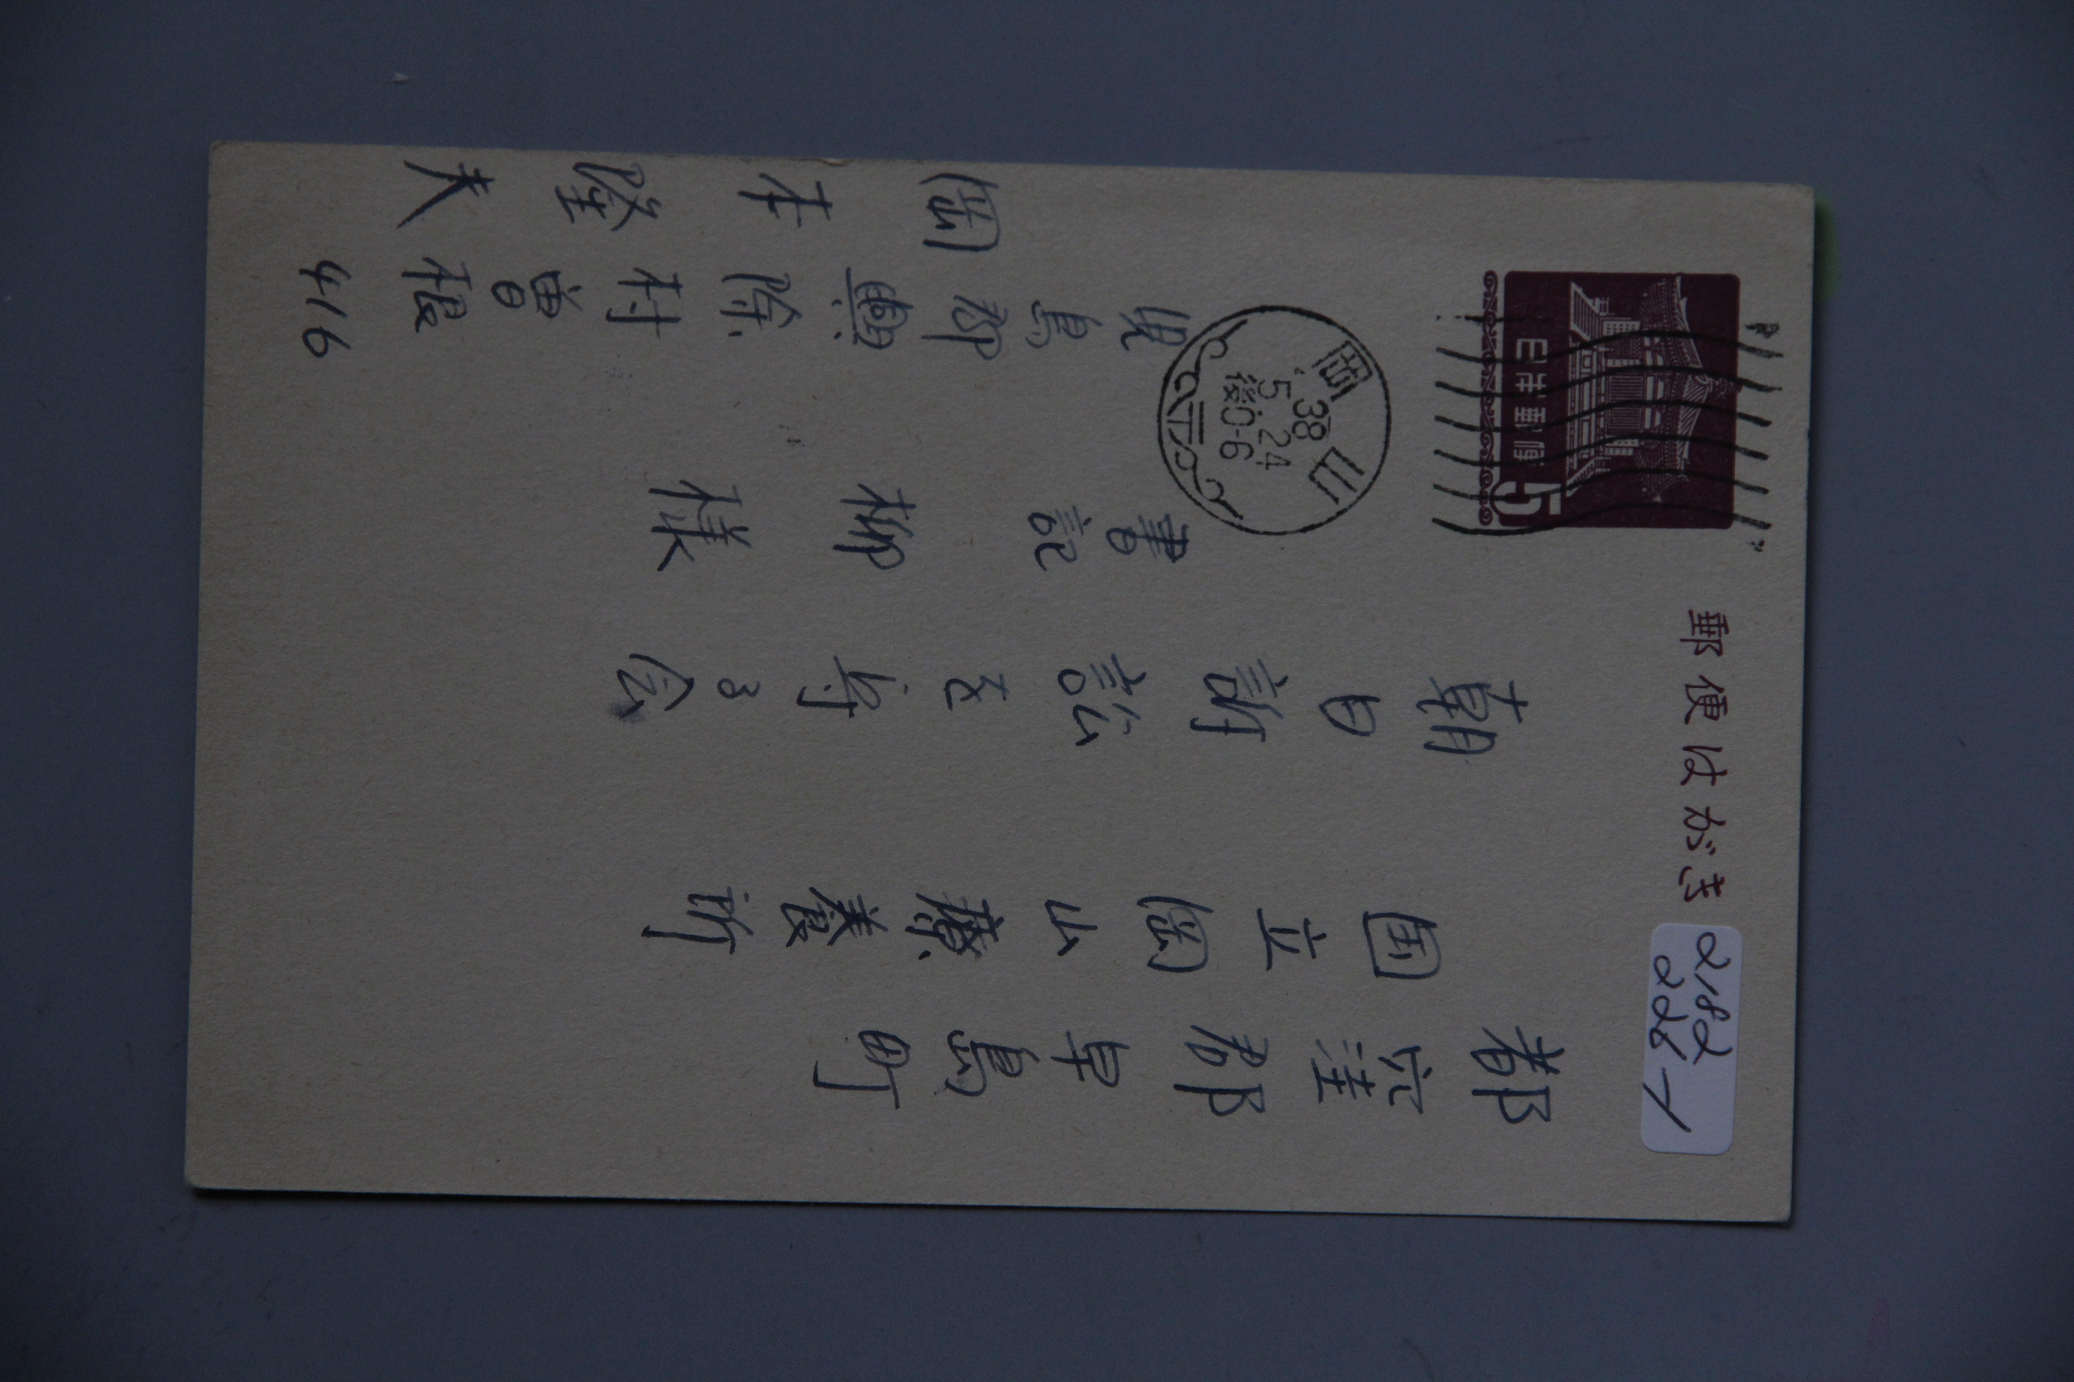 郵便はがき
日本郵便
5
岡山
38
5.24
後0-6
2182
228-1
都窪郡早島町
国立岡山療養所
朝日訴訟を守る会
書記
柳様
児島郡興除村曽根
416
岡本隆夫